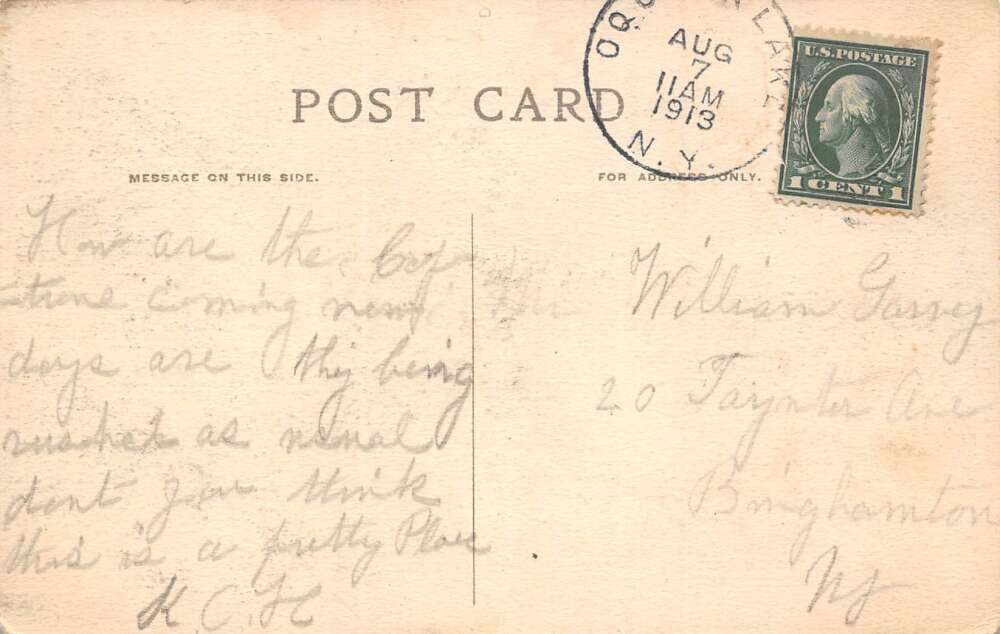 OQU LAKE
AUG
7
11 AM
1913
N.Y.
U.S. POSTAGE
1 CENT 1
POST CARD
MESSAGE ON THIS SIDE.
FOR ADDRESS ONLY.
How are the
coming
days are they being
as
dont you think
this is a pretty Place
K. C. H
William Garvey
20 Ave
Binghamton
NY